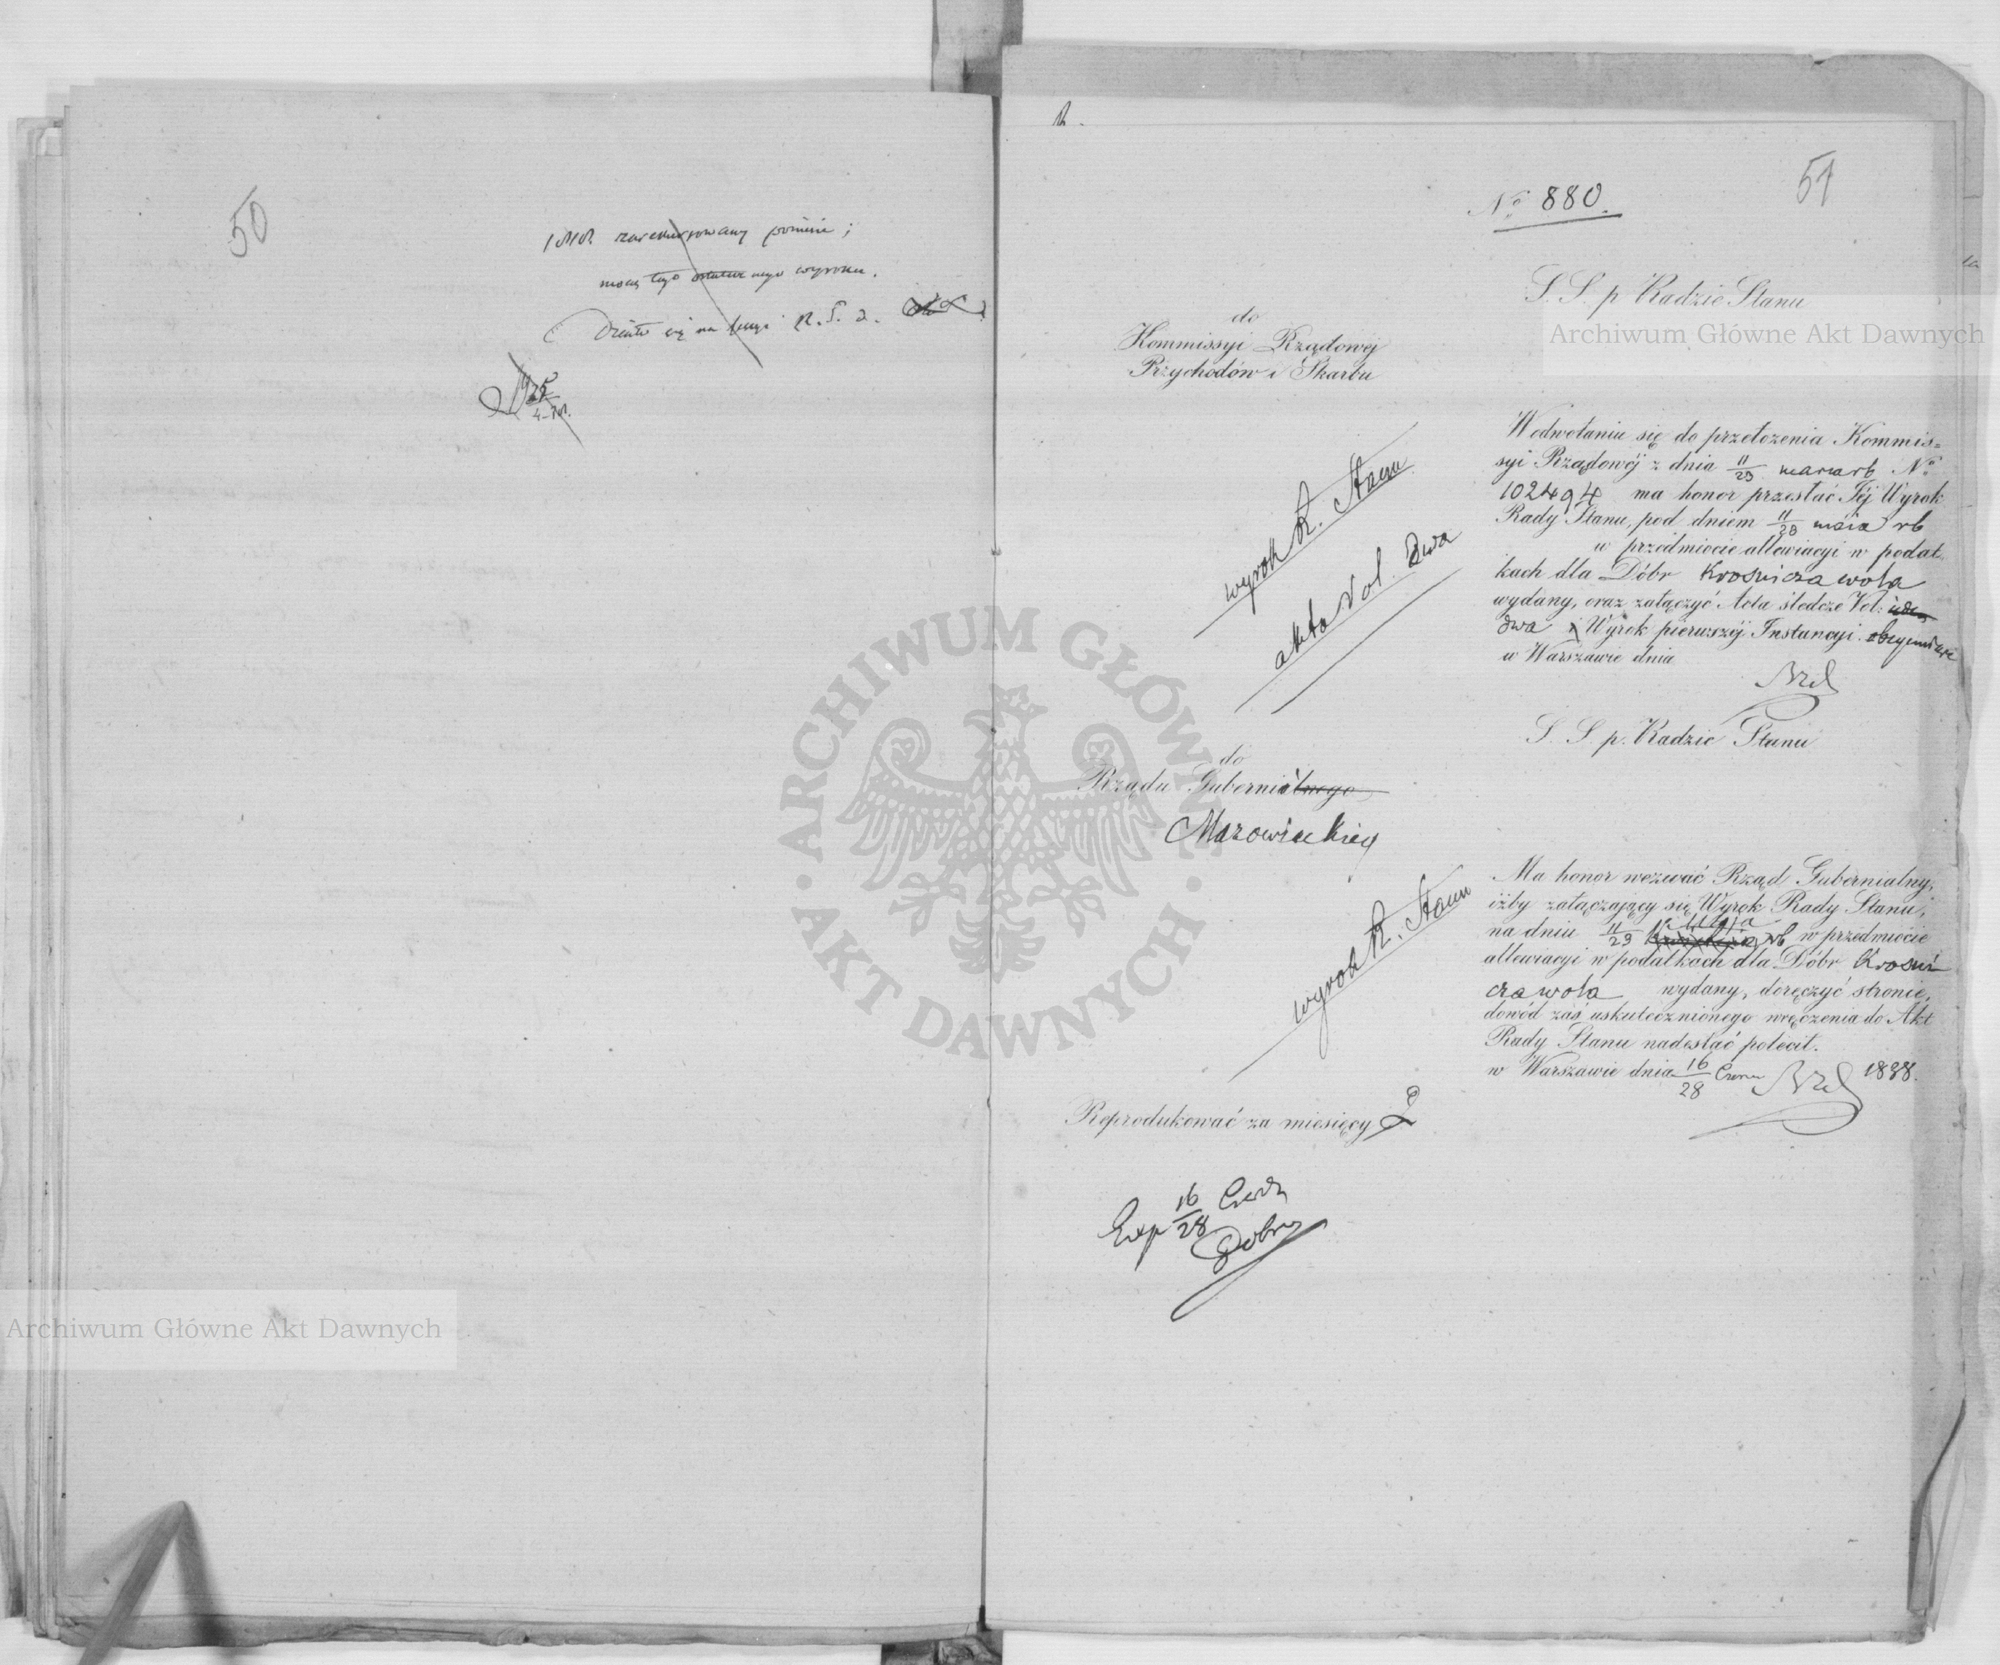 50
zarekurowany
mocą tego wyroku.
R. S. d.
25
51
№ 880.
S. S. p. Radzie Stanu
do
Kommissyi Rządowéj
Przychodów i Skarbu
W odwołaniu się do przełożenia Kommis=
syi Rządowéj z dnia 11/23 marca rb №
102494 ma honor przesłać Jéj Wyrok
Rady Stanu, pod dniem 11/23 maia rb
w przedmiocie allewiacyi w podat-
kach dla Dóbr Krośnicza wola
wydany, oraz załączyć Acta śledcze Vol:
dwa i Wyrok pierwszéj Instancyi
w Warszawie dnia
wyrok R. Stanu
akta Vol. dwa
S. S. p. Radzie Stanu
do
Rządu Gubernialnego
Mazowieckieg
Ma honor wezwać Rząd Gubernialny,
iżby załączający się Wyrok Rady Stanu,
na dniu 11/23 rb w przedmiocie
allewiacyi w podatkach dla Dóbr Krośni
cza wola wydany, doręczyć stronie,
dowód zaś uskutecznionego wręczenia do Akt
Rady Stanu nadesłać polecił.
w Warszawie dnia 16/28 Czerw 1838.
wyrok R. Stanu
Reprodukować za miesięcy 2
Exp 16/28 Czerw
Archiwum Główne Akt Dawnych
Archiwum Główne Akt Dawnych
ARCHIWUM GŁÓWNE AKT DAWNYCH